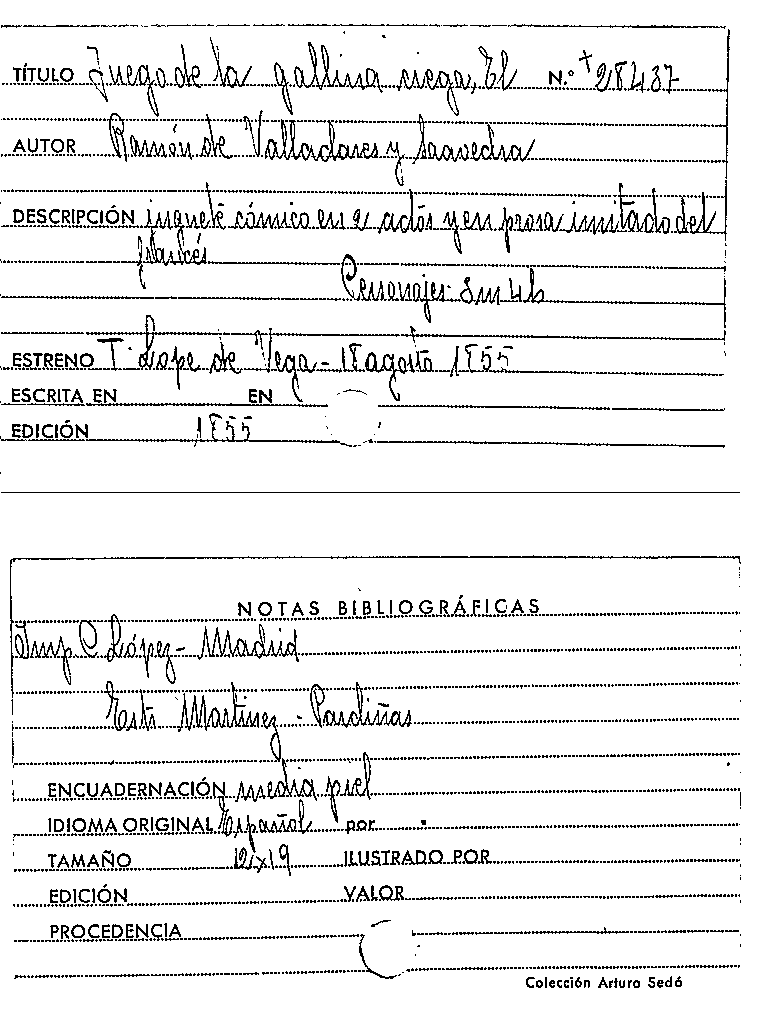 TÍTULO Juego de la gallina ciega, El N.º +28437
AUTOR Ramón de Valladares y Saavedra
DESCRIPCIÓN juguete cómico en 2 actos y en prosa imitado del
francés
Personajes 8m 4h
ESTRENO T. Lope de Vega - 18 agosto 1855
ESCRITA EN EN
EDICIÓN 1855
NOTAS BIBLIOGRÁFICAS
Imp C López - Madrid
Martinez - Pardiñas
ENCUADERNACIÓN media piel
IDIOMA ORIGINAL Español por
TAMAÑO 12x19 ILUSTRADO POR
EDICIÓN VALOR
PROCEDENCIA
Colección Arturo Sedó